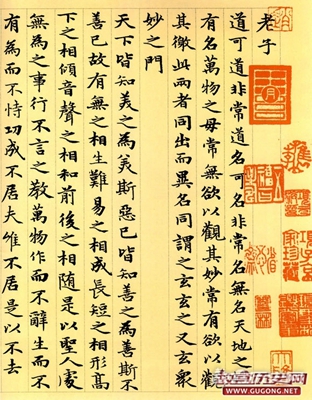 老子
道可道非常道名可名非常名無名天地之
有名萬物之母常無欲以觀其妙常有欲以觀
其徼此兩者同出而異名同謂之玄玄之又玄衆
妙之門
天下皆知美之為美斯惡已皆知善之為善斯不
善已故有無之相生難易之相成長短之相形髙
下之相傾音聲之相和前後之相隨是以聖人處
無為之事行不言之教萬物作而不辭生而不
有為而不恃功成不居夫惟不居是以不去
GUGONG.NET